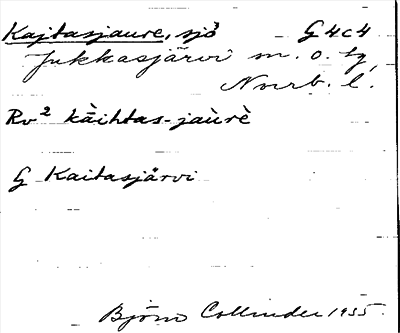 Kajtasjaure, sjö G4c4
Jukkasjärvi sn. o. tg,
Norrb. l.
Rv² kàihtas-jaùrè
G Kaitasjärvi
Björn Collinder 1935.